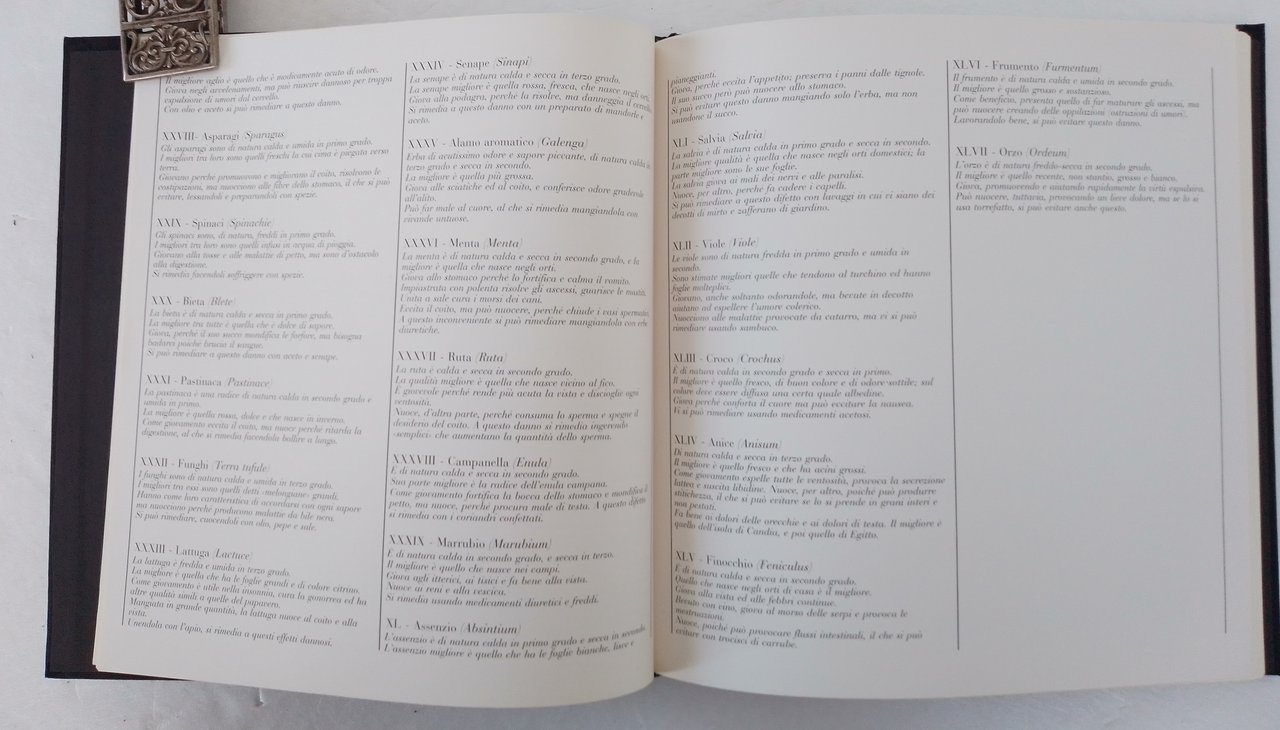 Il migliore aglio è quello che è modicamente acuto di odore.
Giova negli avvelenamenti, ma può riuscire dannoso per troppa
espulsione di umori dal cervello.
Con olio e aceto si può rimediare a questo danno.
XXVIII- Asparagi (Sparagus
Gli asparagi sono di natura calda e umida in primo grado.
I migliori tra loro sono quelli freschi la cui cima è piegata verso
terra.
Giovano perché promuovono e migliorano il coito, risolvono le
costipazioni, ma nuocciono alle fibre dello stomaco, il che si può
evitare, lessandoli e preparandoli con spezie.
XXIX - Spinaci (Spinachie)
Gli spinaci sono, di natura, freddi in primo grado.
I migliori tra loro sono quelli infusi in acqua di pioggia.
Giovano alla tosse e alle malattie di petto, ma sono d'ostacolo
alla digestione.
Si rimedia facendoli soffriggere con spezie.
XXX - Bieta (Blete)
La bieta è di natura calda e secca in primo grado.
La migliore tra tutte è quella che è dolce di sapore.
Giova, perché il suo succo mondifica le forfore, ma bisogna
badarvi poiché brucia il sangue.
Si può rimediare a questo danno con aceto e senape.
XXXI - Pastinaca (Pastinace)
La pastinaca è una radice di natura calda in secondo grado e
umida in primo.
La migliore è quella rossa, dolce e che nasce in inverno.
Come giovamento eccita il coito, ma nuoce perché ritarda la
digestione, al che si rimedia facendola bollire a lungo.
XXXII - Funghi (Terra tufule)
I funghi sono di natura calda e umida in secondo grado.
I migliori tra essi sono quelli detti «melongiane» grandi.
Hanno come loro caratteristica di accordarsi con ogni sapore
ma nuocciono perché producono malattie da bile nera.
Si può rimediare, cuocendoli con olio, pepe e sale.
XXXIII - Lattuga (Lactuce)
La lattuga è fredda e umida in terzo grado.
La migliore è quella che ha le foglie grandi e di colore citrino.
Come giovamento è utile nella insonnia, cura la gonorrea ed ha
altre qualità simili a quelle del papavero.
Mangiata in grande quantità, la lattuga nuoce al coito e alla
vista.
Unendola con l'apio, si rimedia a questi effetti dannosi.
XXXIV - Senape (Sinapi)
La senape è di natura calda e secca in terzo grado.
La senape migliore è quella rossa, fresca, che nasce negli orti.
Giova alla podagra, perché la risolve, ma danneggia il cervello.
Si rimedia a questo danno con un preparato di mandorle e
aceto.
XXXV - Alamo aromatico (Galenga)
Erba di acutissimo odore e sapore piccante, di natura calda in
terzo grado e secca in secondo.
La migliore è quella più grossa.
Giova alle sciatiche ed al coito, e conferisce odore gradevole
all'alito.
Può far male al cuore, al che si rimedia mangiandola con
vivande untuose.
XXXVI - Menta (Menta)
La menta è di natura calda e secca in secondo grado, e la
migliore è quella che nasce negli orti.
Giova allo stomaco perché lo fortifica e calma il vomito.
Impiastrata con polenta risolve gli ascessi, guarisce le mastiti.
Unita a sale cura i morsi dei cani.
Eccita il coito, ma può nuocere, perché chiude i vasi spermatici.
A questo inconveniente si può rimediare mangiandola con erbe
diuretiche.
XXXVII - Ruta (Ruta)
La ruta è calda e secca in secondo grado.
La qualità migliore è quella che nasce vicino al fico.
È giovevole perché rende più acuta la vista e discioglie ogni
ventosità.
Nuoce, d'altra parte, perché consuma lo sperma e spegne il
desiderio del coito. A questo danno si rimedia ingerendo
«semplici» che aumentano la quantità dello sperma.
XXXVIII - Campanella (Enula)
È di natura calda e secca in secondo grado.
Sua parte migliore è la radice dell'enula campana.
Come giovamento fortifica la bocca dello stomaco e mondifica il
petto, ma nuoce, perché procura male di testa. A questo difetto
si rimedia con i coriandri confettati.
XXXIX - Marrubio (Marubium)
È di natura calda in secondo grado, e secca in terzo.
Il migliore è quello che nasce nei campi.
Giova agli itterici, ai tisici e fa bene alla vista.
Nuoce ai reni e alla vescica.
Si rimedia usando medicamenti diuretici e freddi.
XL - Assenzio (Absintium)
L'assenzio è di natura calda in primo grado e secca in secondo.
L'assenzio migliore è quello che ha le foglie bianche, lisce e
pianeggianti.
Giova, perché eccita l'appetito; preserva i panni dalle tignole.
Il suo succo però può nuocere allo stomaco.
Si può evitare questo danno mangiando solo l'erba, ma non
usandone il succo.
XLI - Salvia (Salvia)
La salvia è di natura calda in primo grado e secca in secondo.
La migliore qualità è quella che nasce negli orti domestici; la
parte migliore sono le sue foglie.
La salvia giova ai mali dei nervi e alle paralisi.
Nuoce, per altro, perché fa cadere i capelli.
Si può rimediare a questo difetto con lavaggi in cui vi siano dei
decotti di mirto e zafferano di giardino.
XLII - Viole (Viole)
Le viole sono di natura fredda in primo grado e umida in
secondo.
Sono stimate migliori quelle che tendono al turchino ed hanno
foglie molteplici.
Giovano, anche soltanto odorandole, ma bevute in decotto
aiutano ad espellere l'umore colerico.
Nuocciono alle malattie provocate da catarro, ma vi si può
rimediare usando sambuco.
XLIII - Croco (Crochus)
È di natura calda in secondo grado e secca in primo.
Il migliore è quello fresco, di buon colore e di odore sottile; sul
colore deve essere diffusa una certa quale albedine.
Giova perché conforta il cuore ma può eccitare la nausea.
Vi si può rimediare usando medicamenti acetosi.
XLIV - Anice (Anisum)
Di natura calda e secca in terzo grado.
Il migliore è quello fresco e che ha acini grossi.
Come giovamento espelle tutte le ventosità, provoca la secrezione
lattea e suscita libidine. Nuoce, per altro, poiché può produrre
stitichezza, il che si può evitare se lo si prende in grani interi e
non pestati.
Fa bene ai dolori delle orecchie e ai dolori di testa. Il migliore è
quello dell'isola di Candia, e poi quello di Egitto.
XLV - Finocchio (Feniculus)
È di natura calda e secca in secondo grado.
Quello che nasce negli orti di casa è il migliore.
Giova alla vista ed alle febbri continue.
Bevuto con vino, giova al morso delle serpi e provoca le
mestruazioni.
Nuoce, poiché può provocare flussi intestinali, il che si può
evitare con trocisci di carrube.
XLVI - Frumento (Furmentum)
Il frumento è di natura calda e umida in secondo grado.
Il migliore è quello grosso e sostanzioso.
Come beneficio, presenta quello di far maturare gli ascessi, ma
può nuocere creando delle oppilazioni (ostruzioni di umori).
Lavorandolo bene, si può evitare questo danno.
XLVII - Orzo (Ordeum)
L'orzo è di natura freddo-secca in secondo grado.
Il migliore è quello recente, non stantio, grosso e bianco.
Giova, promuovendo e aiutando rapidamente la virtù espulsiva.
Può nuocere, tuttavia, provocando un lieve dolore, ma se lo si
usa torrefatto, si può evitare anche questo.